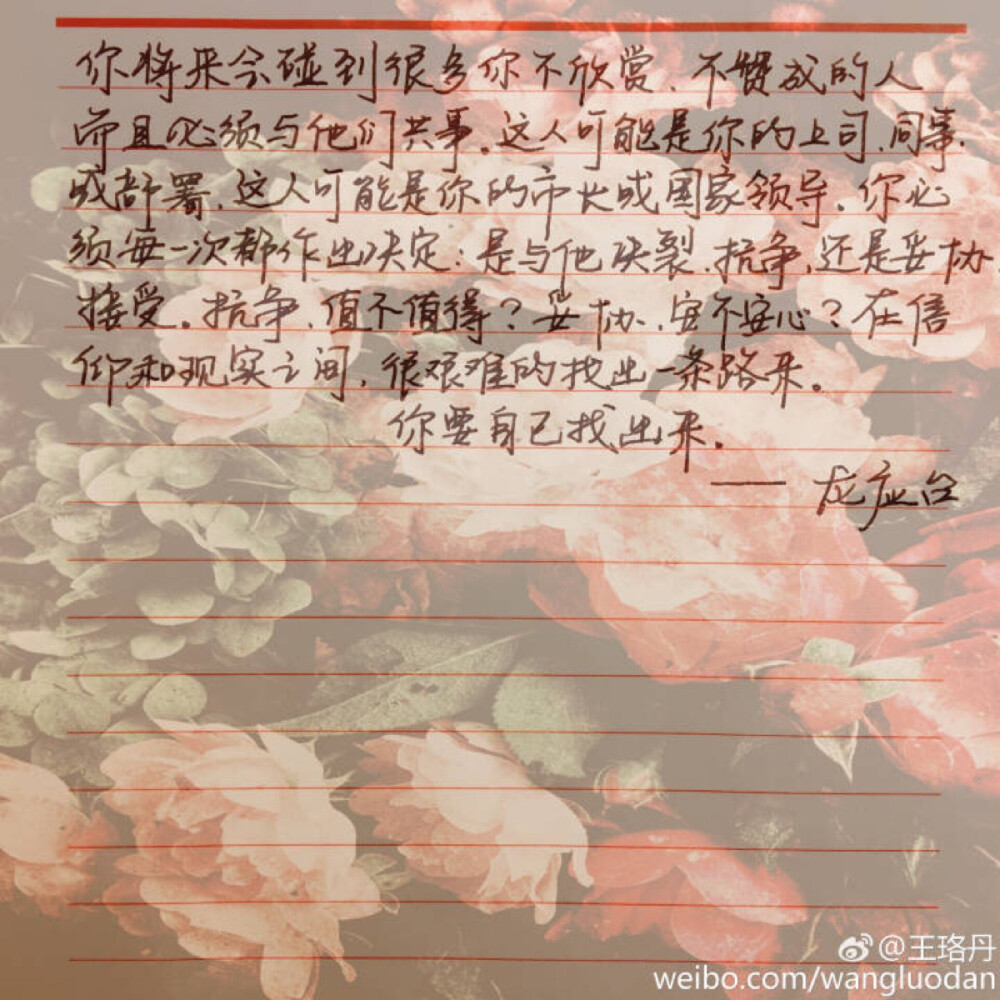 你将来会碰到很多你不欣赏、不赞成的人
而且必须与他们共事。这人可能是你的上司、同事、
或部署，这人可能是你的市长或国家领导。你必
须每一次都作出决定：是与他决裂、抗争，还是妥协、
接受。抗争，值不值得？妥协，安不安心？在信
仰和现实之间，很艰难的找出一条路来。
你要自己找出来。
—— 龙应台
@王珞丹
weibo.com/wangluodan